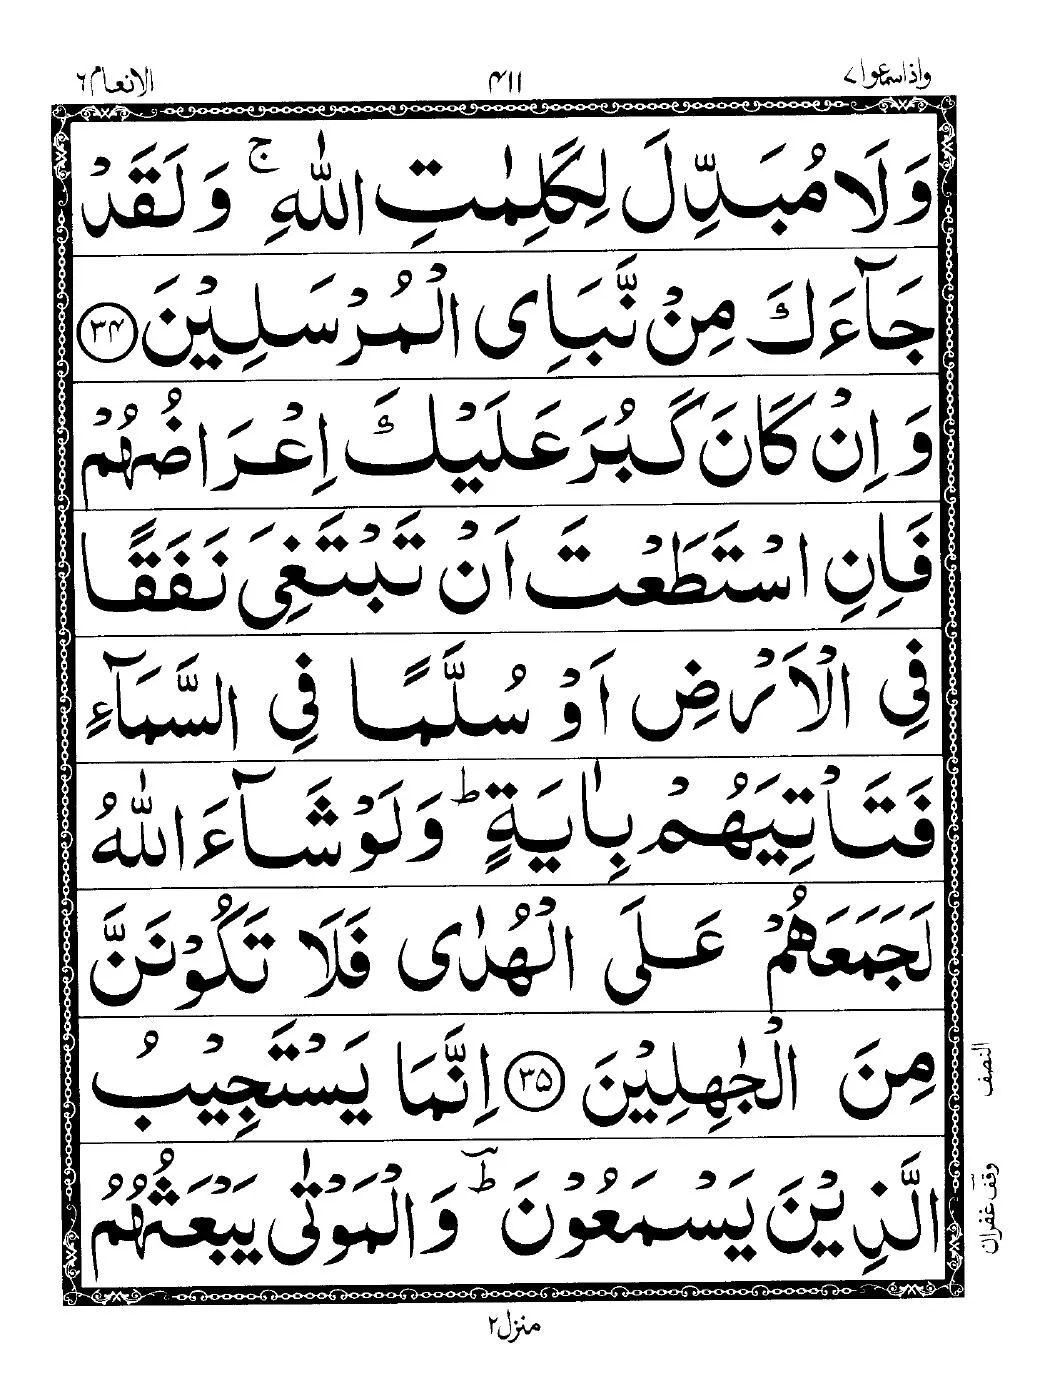 واذاسمعوا ٧ ٤١١ الانعام ٦
وَلَا مُبَدِّلَ لِكَلِمٰتِ اللّٰهِ ۚ وَلَقَدْ
جَآءَكَ مِنْ نَّبَاِی الْمُرْسَلِيْنَ ﴿۳۴﴾
وَاِنْ كَانَ كَبُرَ عَلَيْكَ اِعْرَاضُهُمْ
فَاِنِ اسْتَطَعْتَ اَنْ تَبْتَغِیَ نَفَقًا
فِی الْاَرْضِ اَوْ سُلَّمًا فِی السَّمَآءِ
فَتَاْتِيَهُمْ بِاٰيَةٍ ؕ وَلَوْ شَآءَ اللّٰهُ
لَجَمَعَهُمْ عَلَی الْهُدٰی فَلَا تَكُوْنَنَّ
مِنَ الْجٰهِلِيْنَ ﴿۳۵﴾ اِنَّمَا يَسْتَجِيْبُ
النصف
الَّذِيْنَ يَسْمَعُوْنَ ؕ وَالْمَوْتٰی يَبْعَثُهُمُ
وقف غفران
منزل ٢